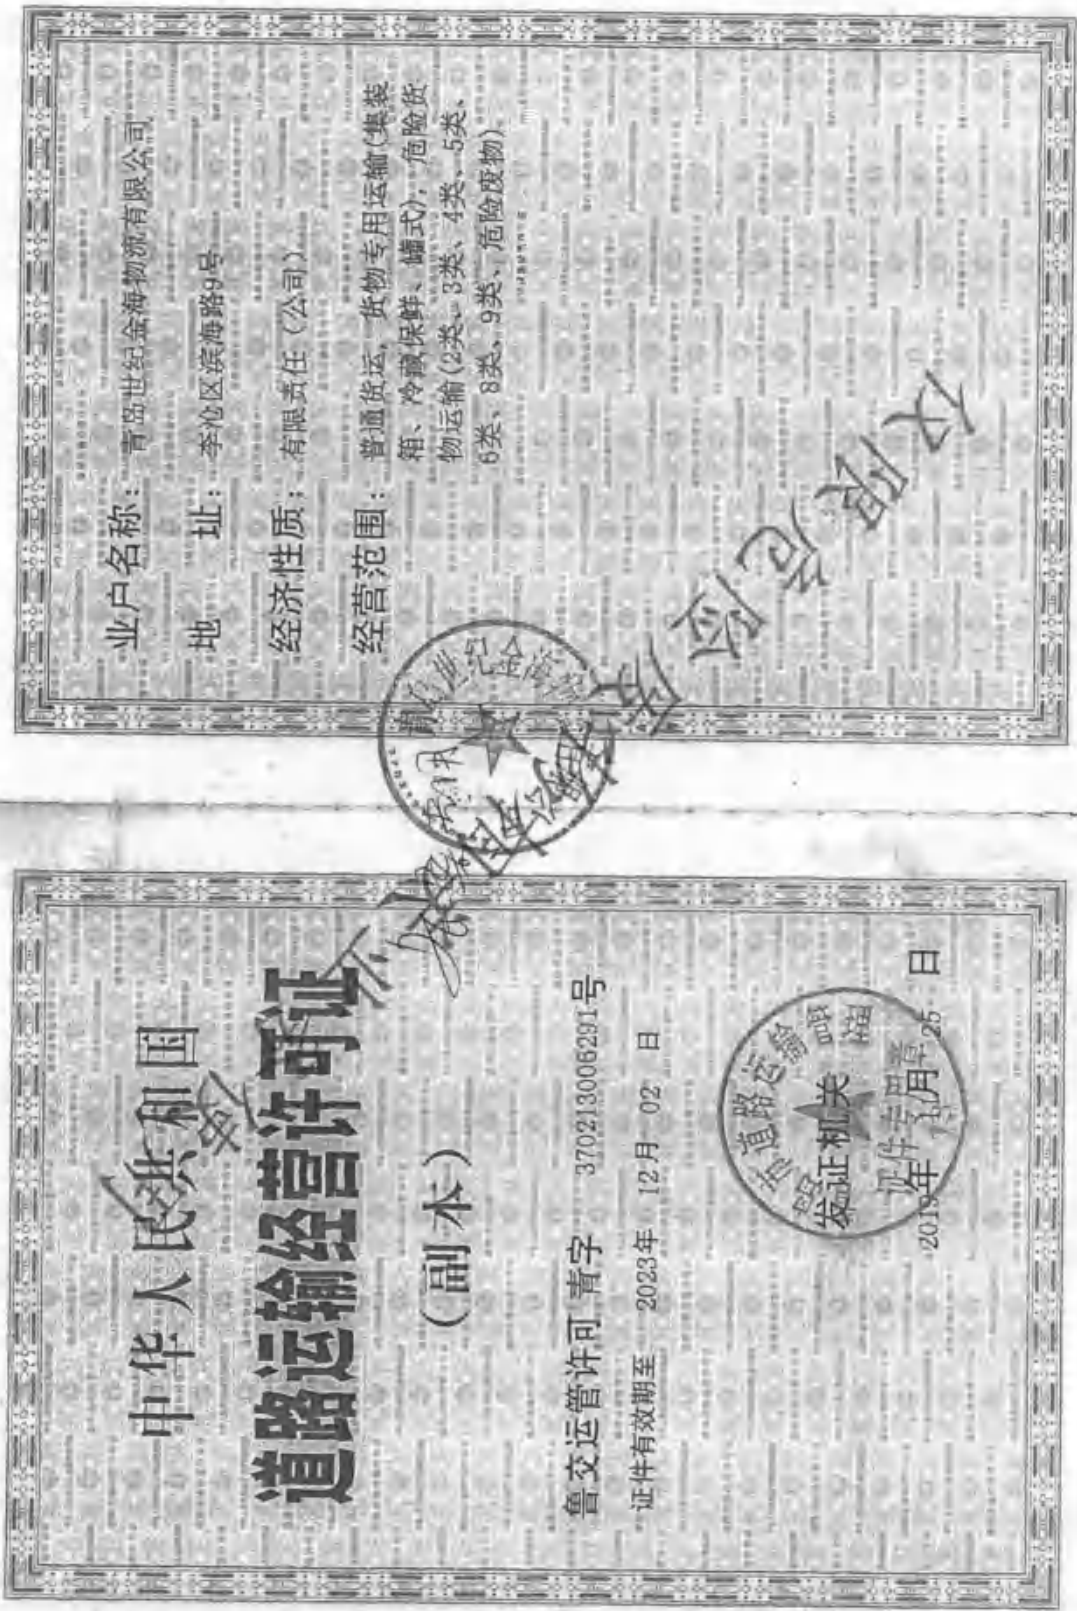 中华人民共和国
道路运输经营许可证
(副本)
鲁交运管许可 青字 370213006291号
证件有效期至 2023年 12月 02 日
道路运输
发证机关
证件专用章
2019年 25 日
业户名称: 青岛世纪金海物流有限公司
地 址: 李沧区滨海路9号
经济性质: 有限责任(公司)
经营范围: 普通货运, 货物专用运输(集装
箱、冷藏保鲜、罐式), 危险货
物运输(2类、3类、4类、5类、
6类、8类、9类、危险废物)
世纪金海
仅限危险废